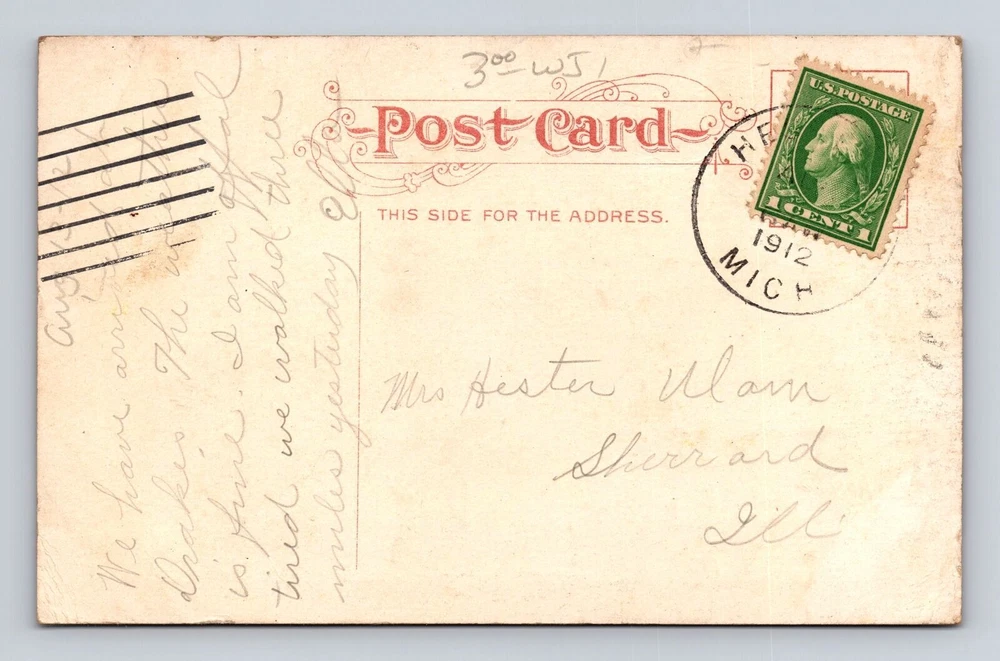 3 00 WJ1
Post Card
THIS SIDE FOR THE ADDRESS.
U.S. POSTAGE
1 CENT 1
HE
1912
MICH
Aug 12-12
We have arrived at
Drakes. The weather
is fine. I am offal
tired we walked three
miles yesterday
Mrs Hester Ulam
Sherrard
Ill